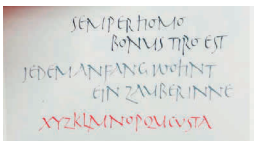 SEMPER HOMO
BONUS TIRO EST
JEDEM ANFANG WOHNT
EIN ZAUBER INNE
XYZKLMNOPQU